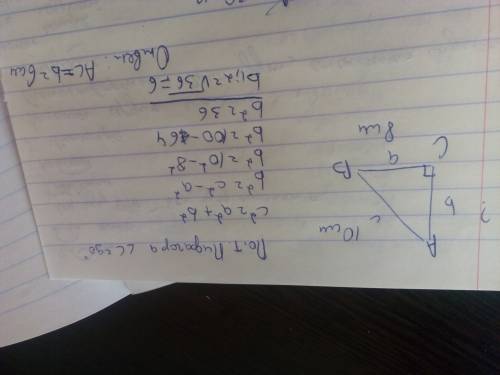 По т. Пифагора ∠C=90°
c²=a²+b²
b²=c²-a²
b²=10²-8²
b²=100-64
b²=36
b₁,₂=√36=6
Ответ: AC=b=6см
A
?
b
c
10см
C
B
a
8см